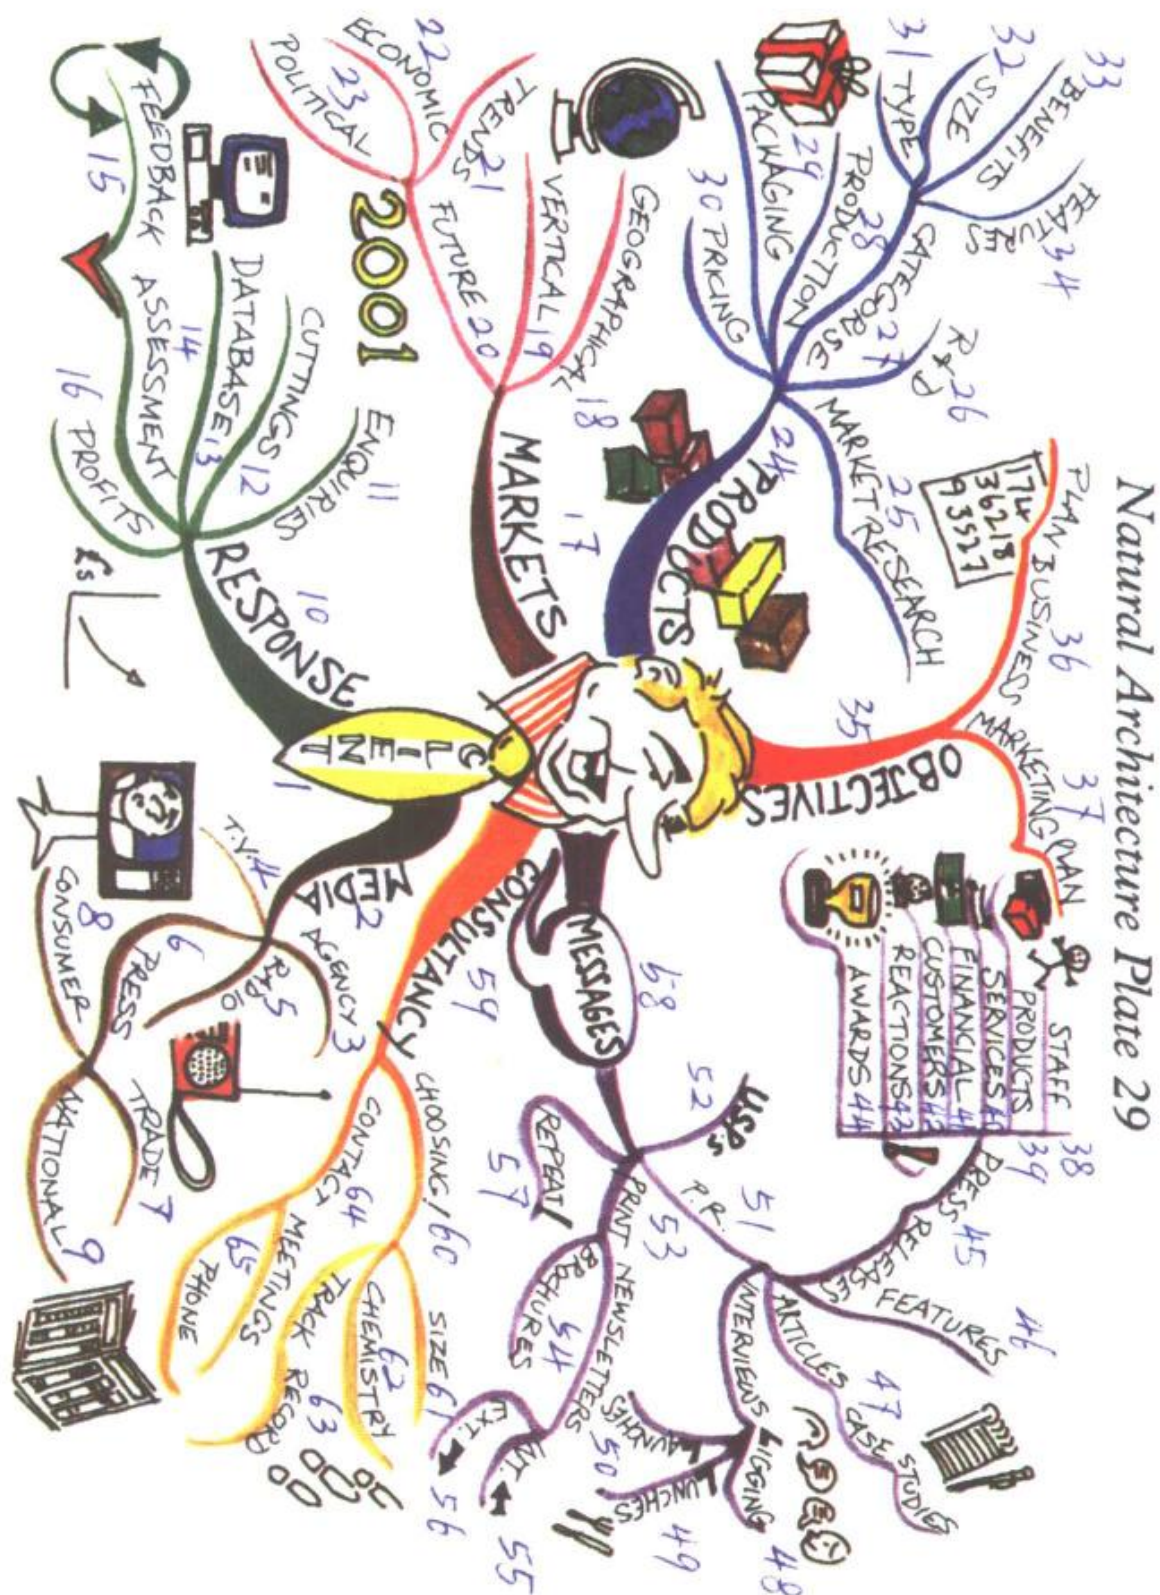 Natural Architecture Plate 29
CLIENT
1
MEDIA
2
AGENCY 3
T.V. 4
RADIO 5
PRESS
6
TRADE 7
CONSUMER
8
NATIONAL 9
RESPONSE
10
ENQUIRIES
11
CUTTINGS 12
DATABASE 13
ASSESSMENT
14
FEEDBACK
15
16 PROFITS
£s
MARKETS
17
GEOGRAPHICAL
18
VERTICAL 19
FUTURE 20
2001
TRENDS
21
ECONOMIC
22
POLITICAL
23
PRODUCTS
24
MARKET RESEARCH
25
R & D
26
CATEGORISE
27
PRODUCTION
28
PACKAGING
29
30 PRICING
31 TYPE
32 SIZE
33
BENEFITS
FEATURES
34
OBJECTIVES
35
PLAN BUSINESS
36
174
36218
93527
MARKETING PLAN
37
STAFF 38
PRODUCTS 39
SERVICES 40
FINANCIAL 41
CUSTOMERS 42
REACTIONS 43
AWARDS 44
PRESS RELEASES
45
FEATURES
46
ARTICLES CASE STUDIES
47
INTERVIEWS
LIGGING
48
LUNCHES
49
LAUNCHES
50
P.R.
51
U.S.P.s
52
PRINT NEWSLETTERS
53
BROCHURES
54
INT.
55
EXT.
56
REPEAT!
57
MESSAGES
58
CONSULTANCY
59
CHOOSING! 60
SIZE 61
CHEMISTRY
62
TRACK RECORD
63
CONTACT
64
MEETINGS
65
PHONE